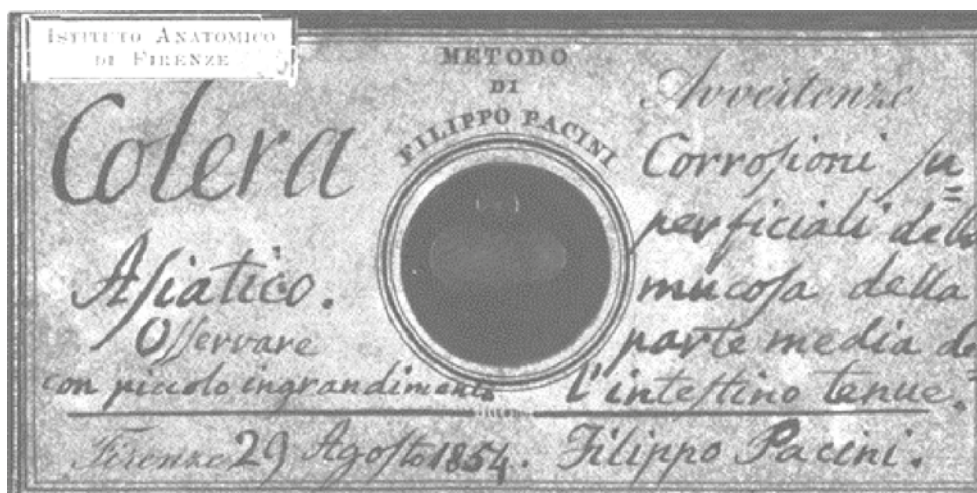 ISTITUTO ANATOMICO
DI FIRENZE
METODO
DI
FILIPPO PACINI
Colera
Asiatico.
Osservare
con piccolo ingrandimento
Avvertenze
Corrosioni su=
perficiali della
mucosa della
parte media de
l'intestino tenue.
Firenze 29 Agosto 1854. Filippo Pacini.